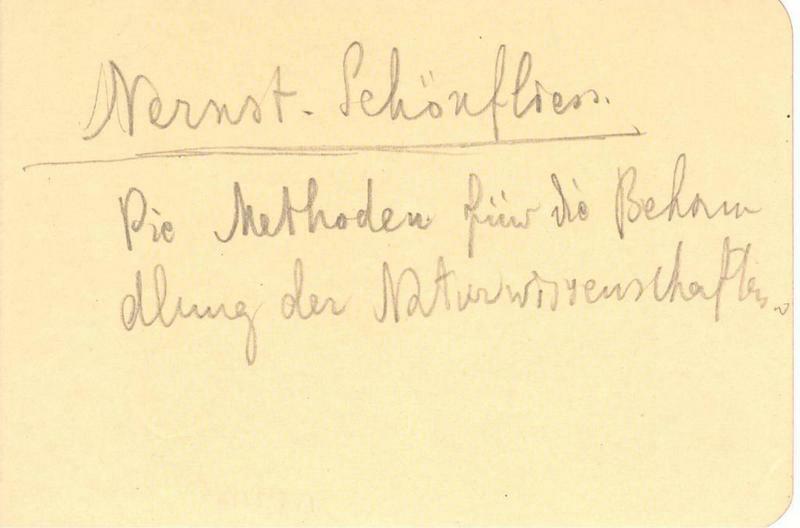 Nernst - Schönfliess.
Die Methoden für die Behan
dlung der Naturwissenschaften.